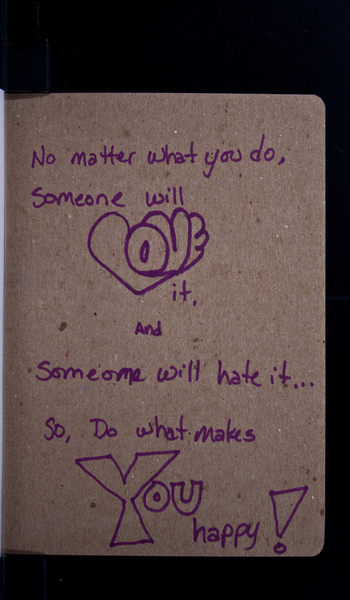 No matter what you do,
Someone will
LOVE
it,
And
Someone will hate it...
So, Do what makes
You
happy!